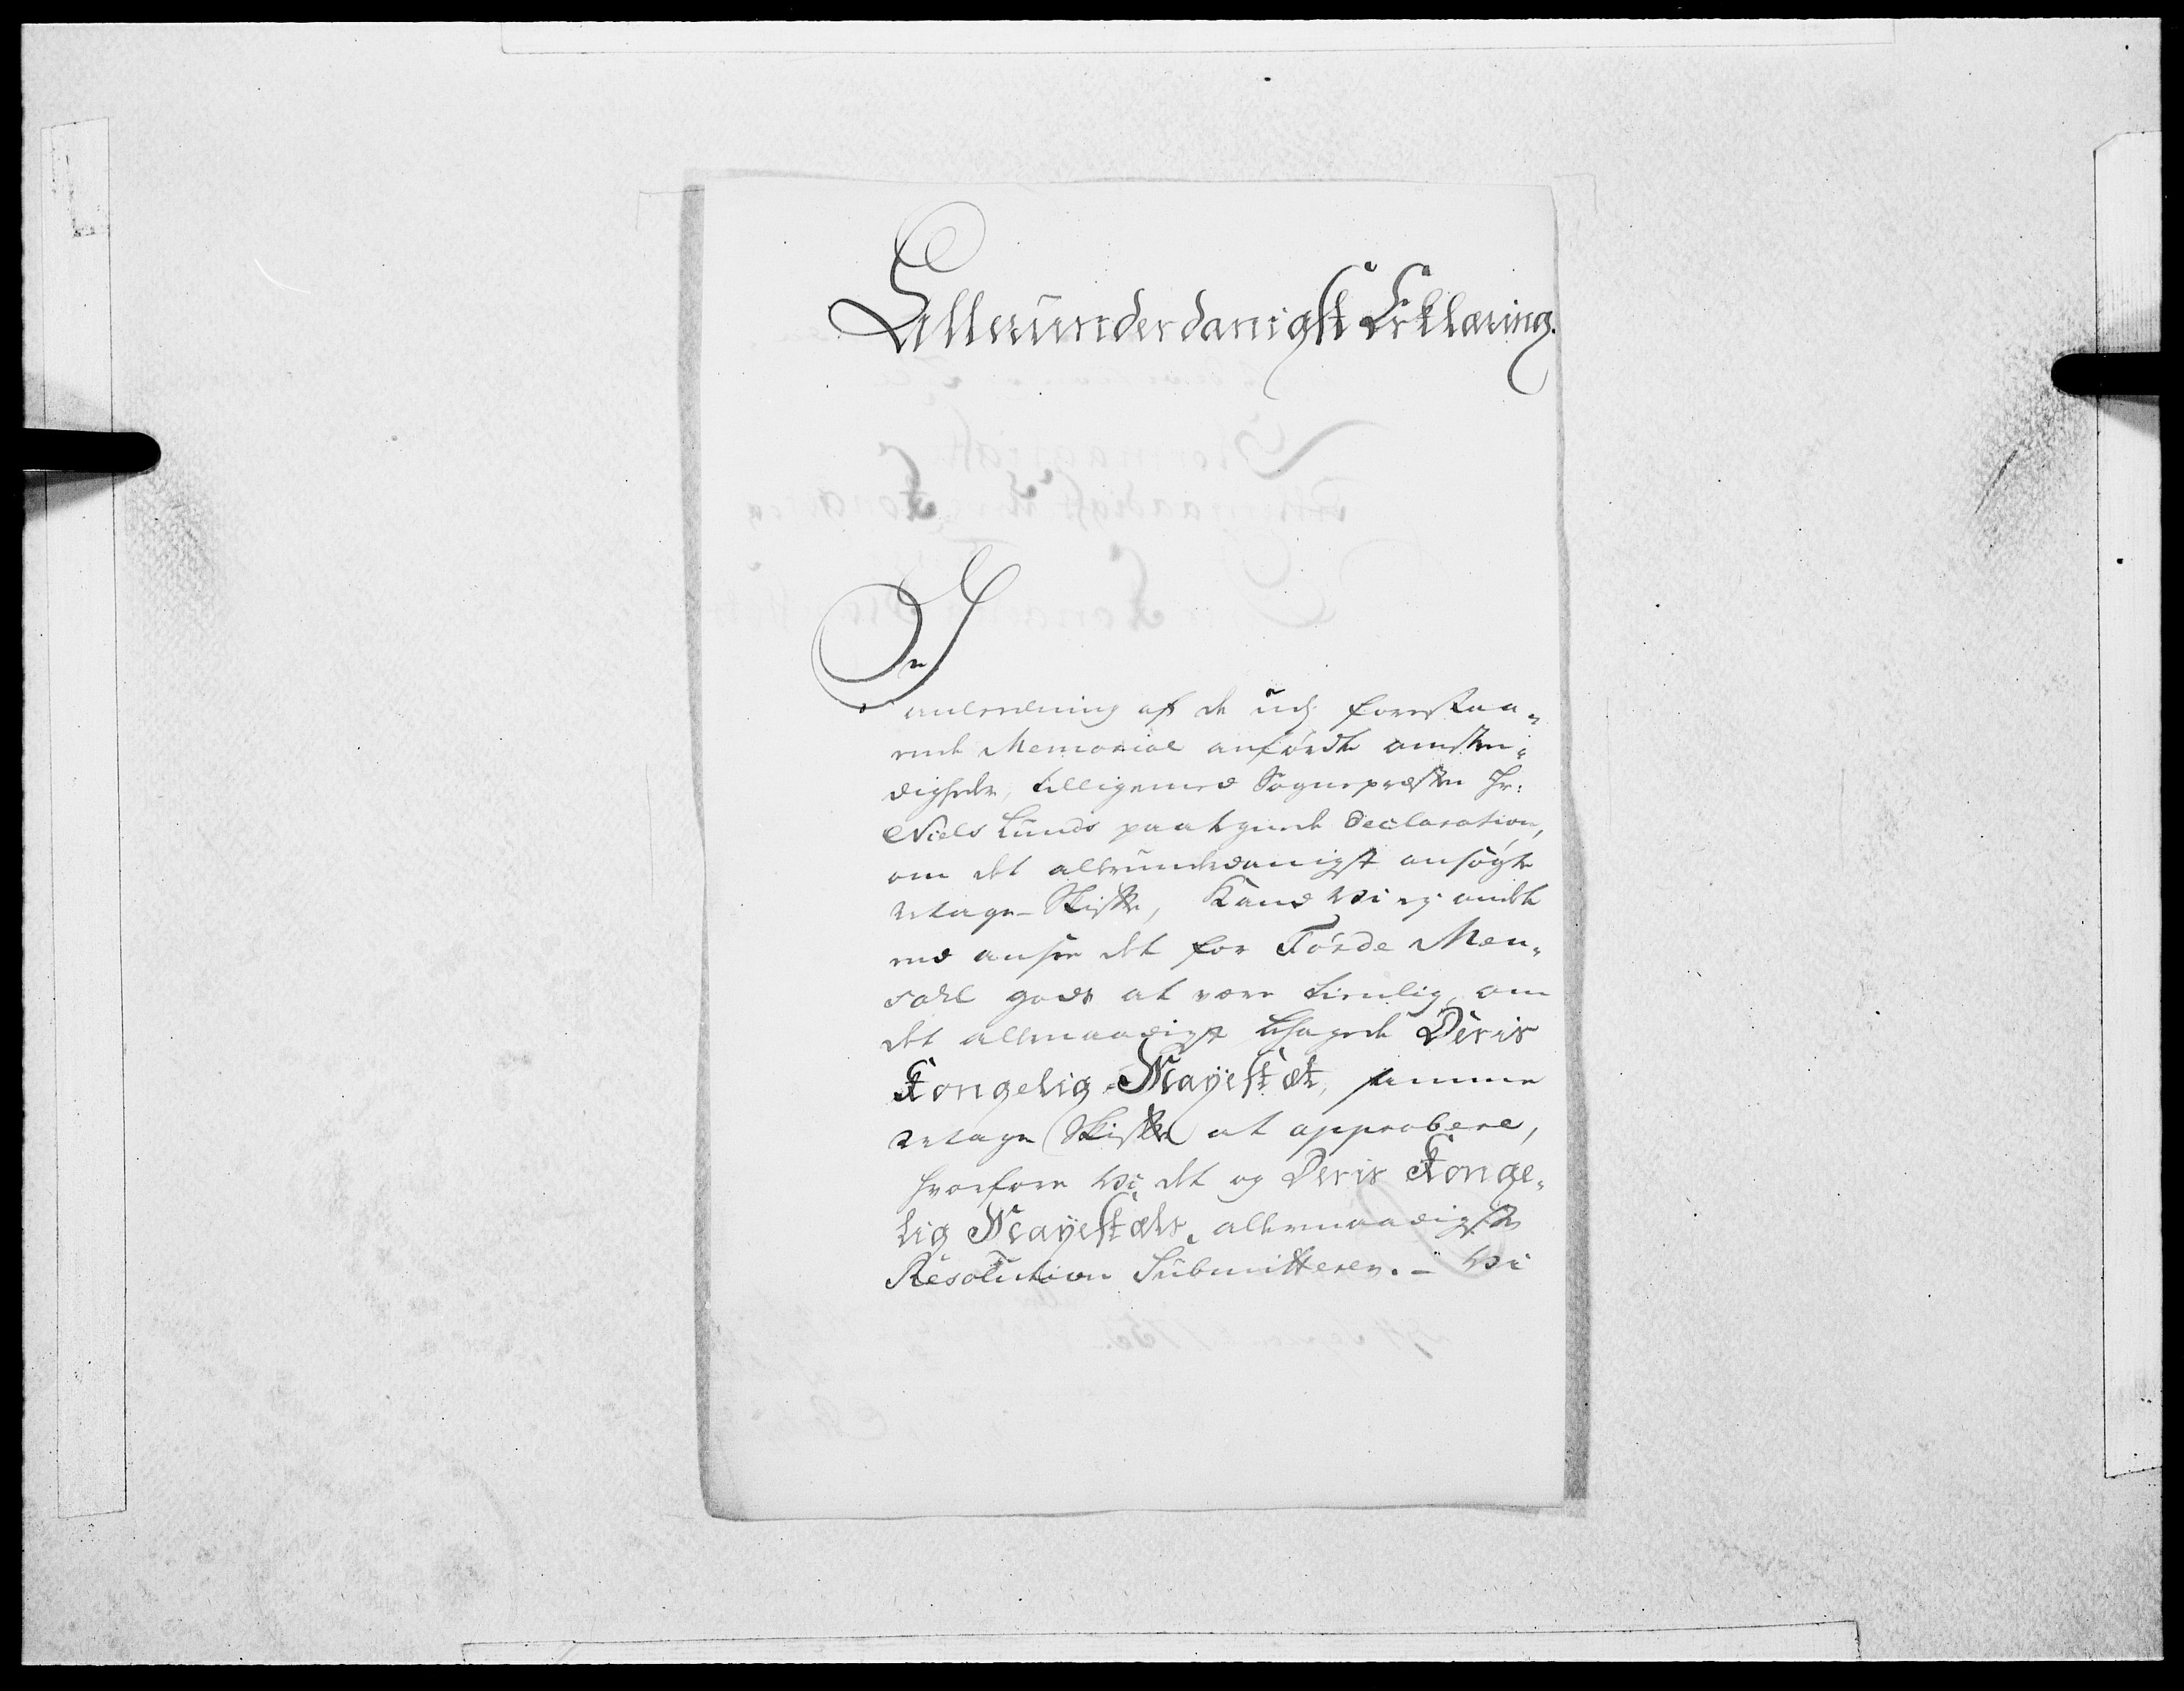 Allerunderdanigst Erklæring.
In
anledning af de udj forestaa-
ende Memorial anførdte omsten-
digheder, tilligemed Sognepræsten Hr:
Niels Lunds paategnede Declaration,
om det allerunderdanigst ansøgte
Mage-Skifte, Kand vi ej andet
end ansee det for Førde Men-
sahl godt at være tienlig, om
det allernaadigst behagede Deris
Kongelig Mayestæt, samme
Mage Skifte at approbere,
hvorfore vi det og Deris Konge-
lig Mayestæts allernaadigste
Resolution Submitterer. - Vi